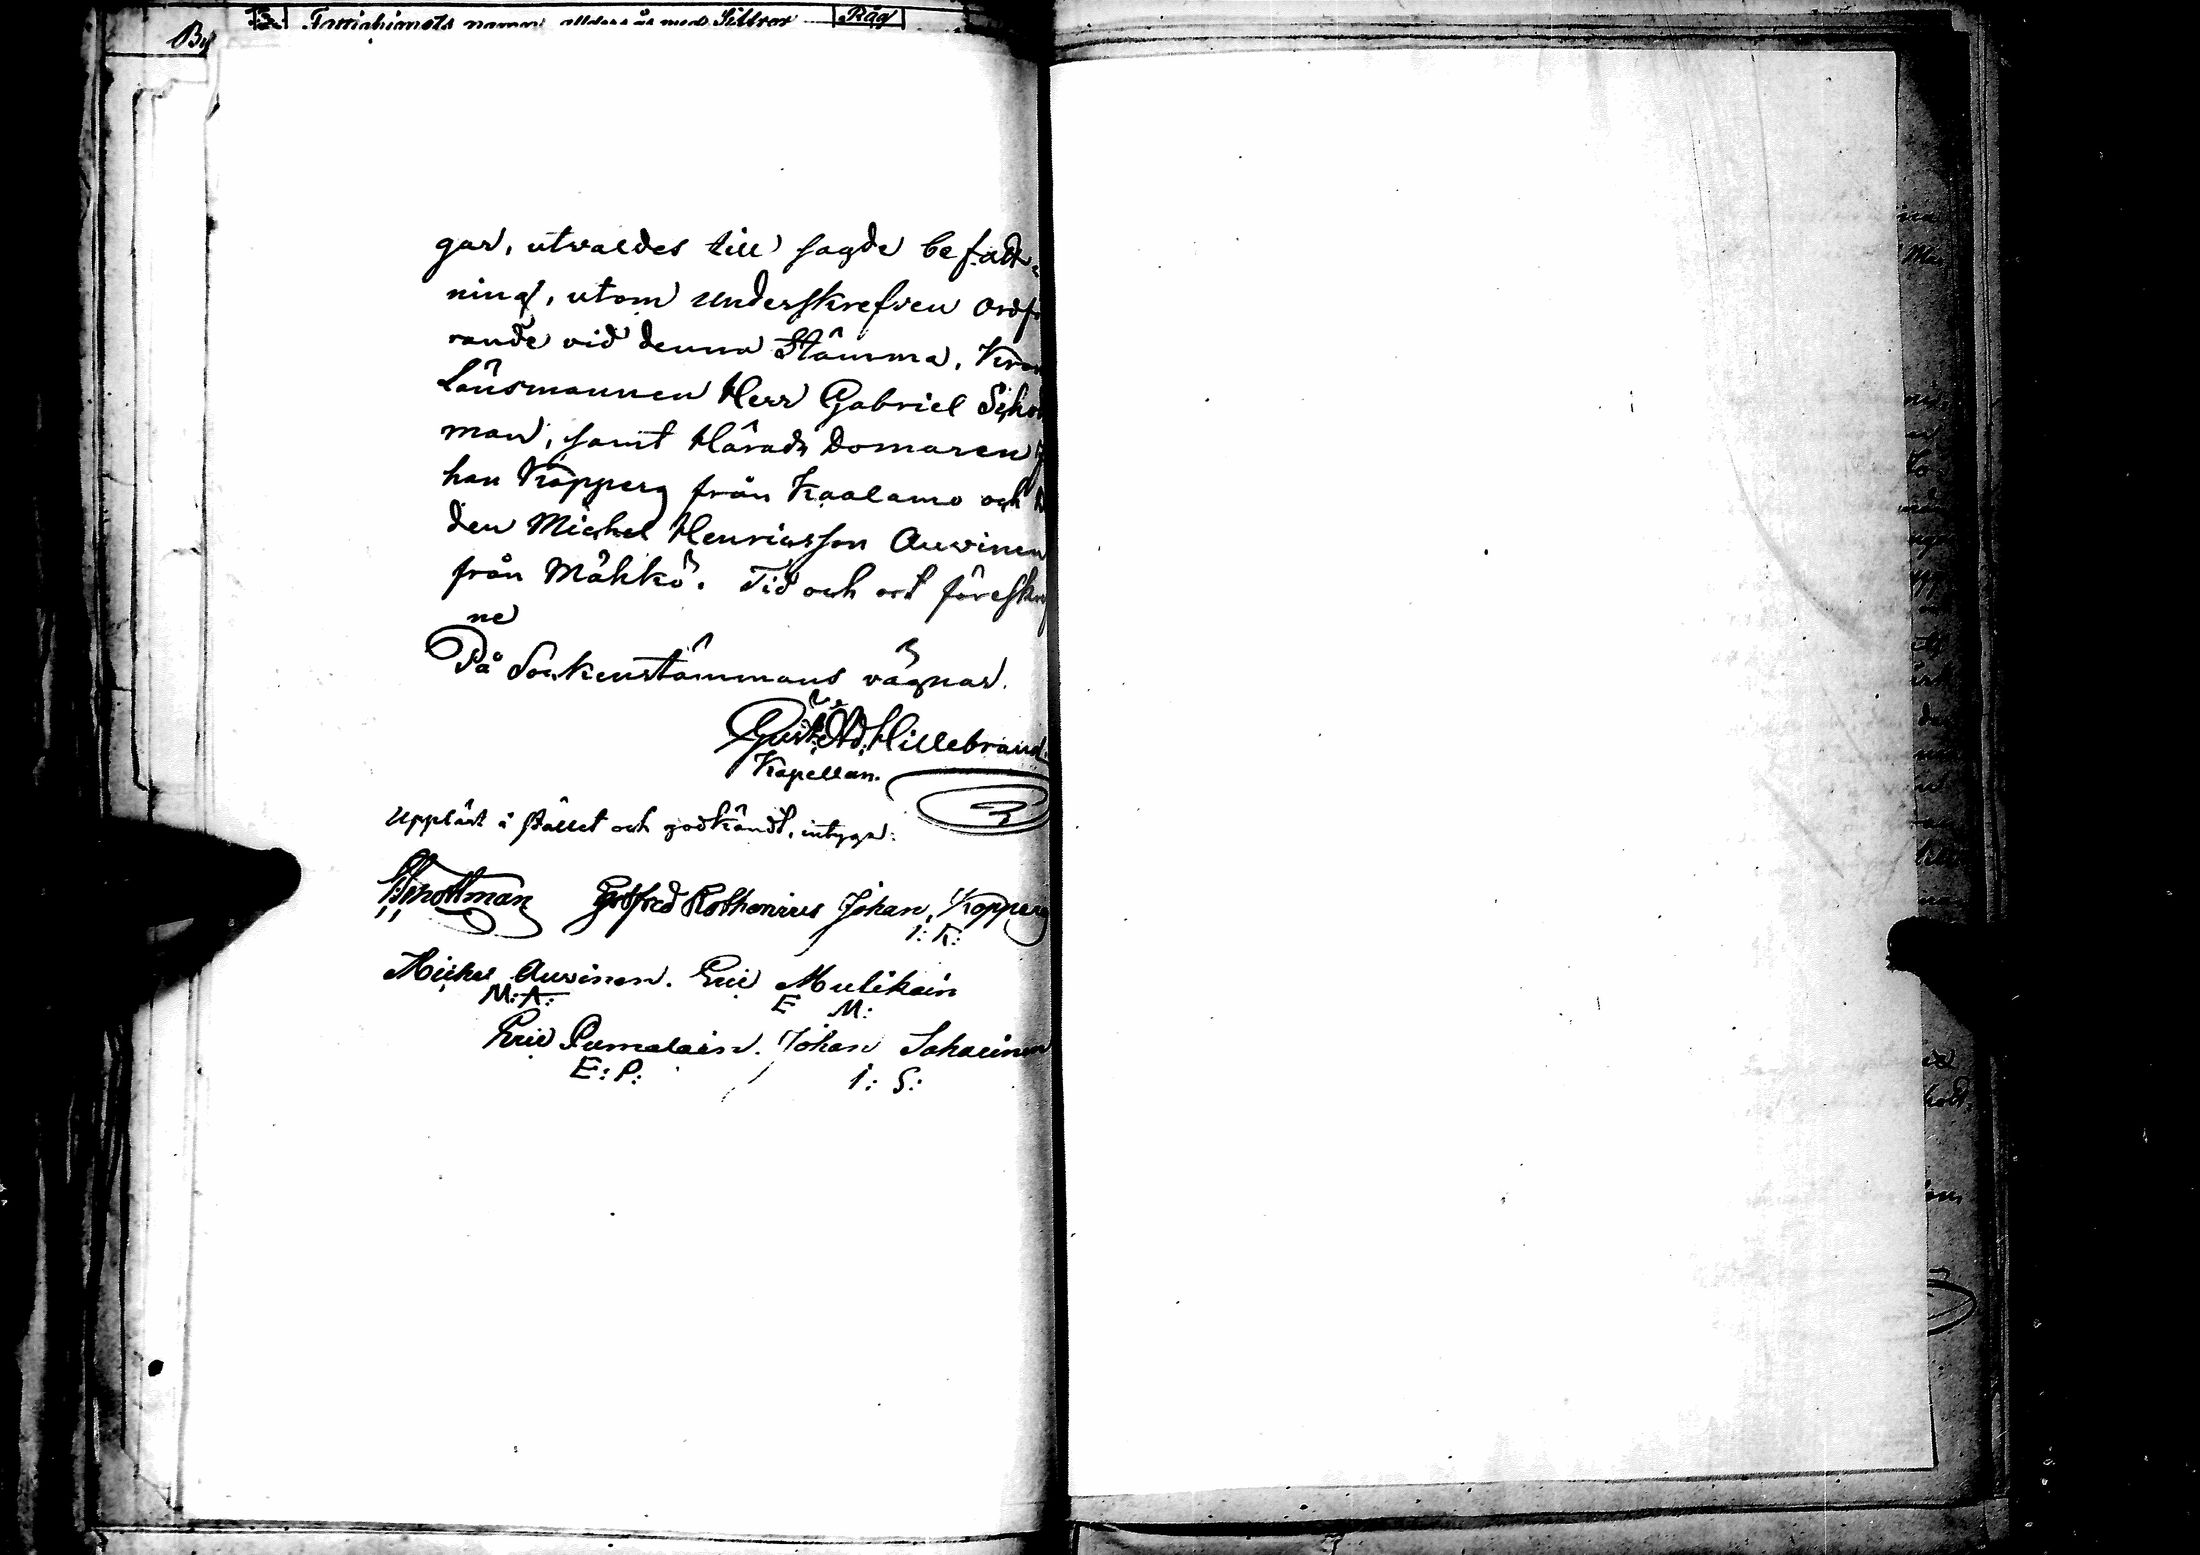 By
Familjernets namn alldess år med Siffror Råg
gar, utvaldes till sagde befatt-
ning, utom underskrefven Ordfö
rande vid denna Stämma, Kron
Länsmannen Herr Gabriel
man, samt Härads Domaren
han Kopperg från Kaalamo och
den Michel Henricsson Auvinen
från Mähkö. Tid och ort föreskref
ne
På Sockenstämmans vägnar.
Gust. Ad. Hillebrand
Kapellan.
Uppläst i stället och godkändt, intyga:
Gotfred Rothonius Johan Kopperg
I: K:
Michel Auvinen. Eric Mulikain
M: A: E M:
Eric Pumalain. Johan
E: P: I: S: